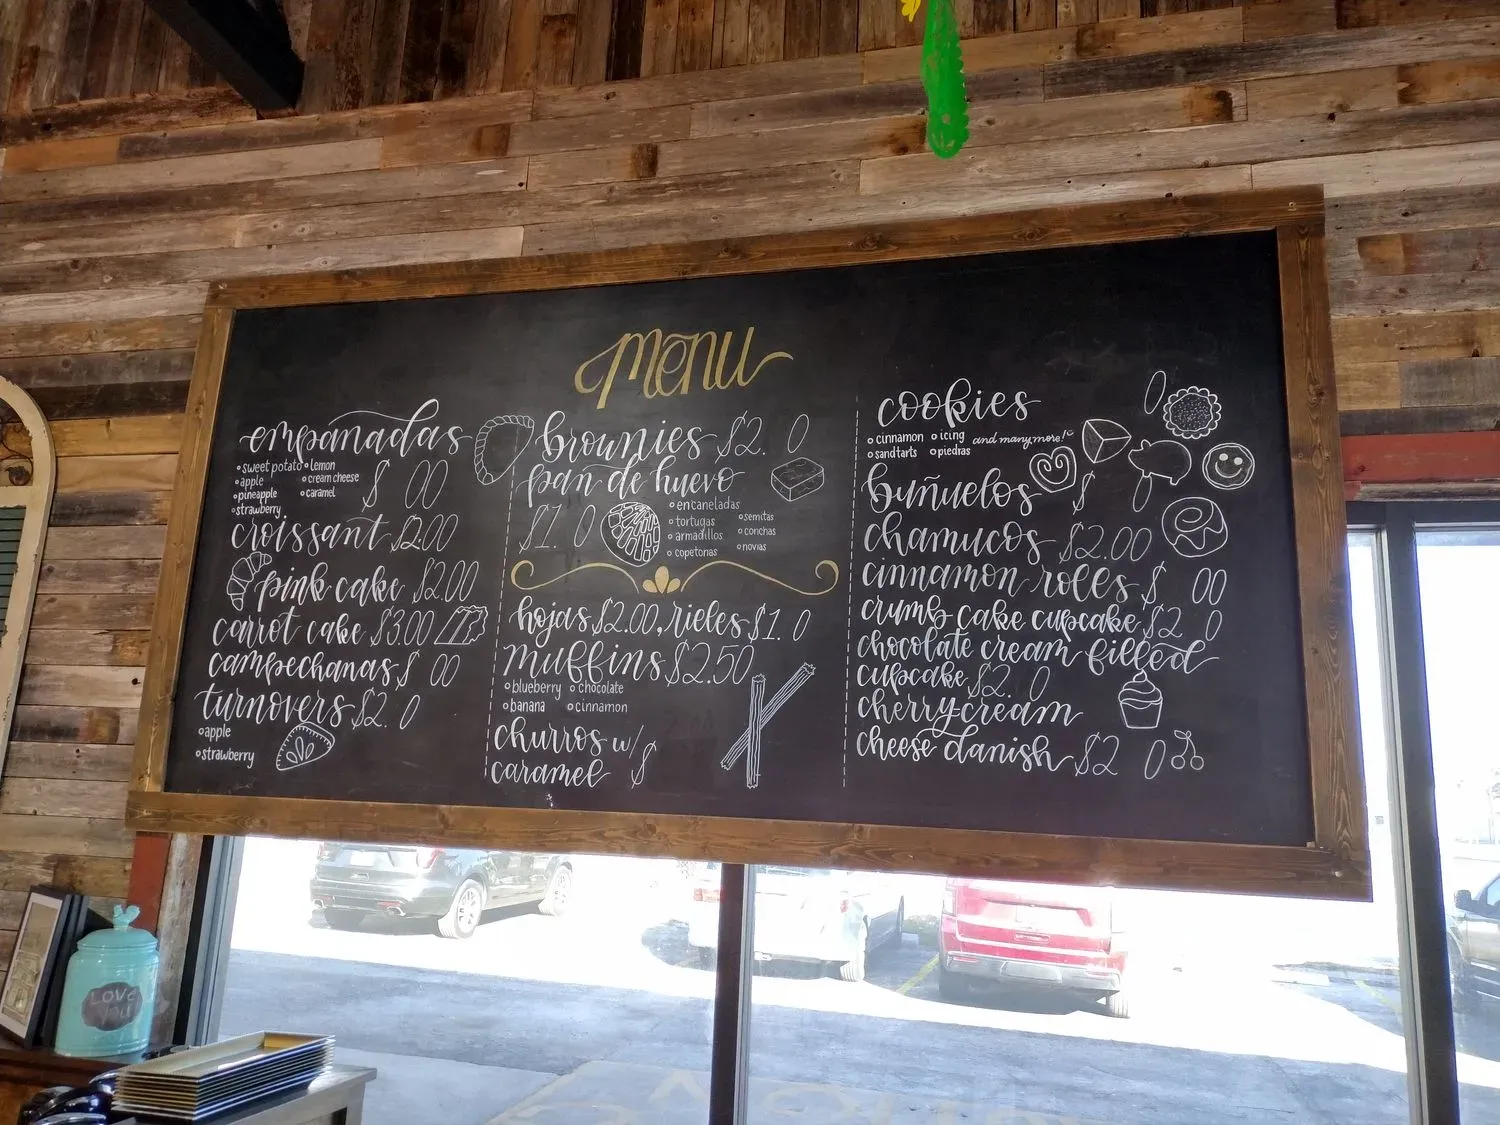 menu
empanadas
sweet potato
lemon
apple
cream cheese
pineapple
caramel
strawberry
$ 00
croissant $2.00
pink cake $2.00
carrot cake $3.00
campechanas $ 00
turnovers $2. 0
apple
strawberry
brownies $2. 0
pan de huevo
$1. 0
encaneladas
tortugas
semitas
armadillos
conchas
copetonas
novias
hojas $2.00, rieles $1. 0
muffins $2.50
blueberry
chocolate
banana
cinnamon
churros w/
caramel $
cookies 0
cinnamon
icing
and many more!
sandtarts
piedras
buñuelos $ 0
chamucos $2.00
cinnamon rolls $ 00
crumb cake cupcake $2 0
chocolate cream filled
cupcake $2. 0
cherry cream
cheese danish $2 0
LOVE
you